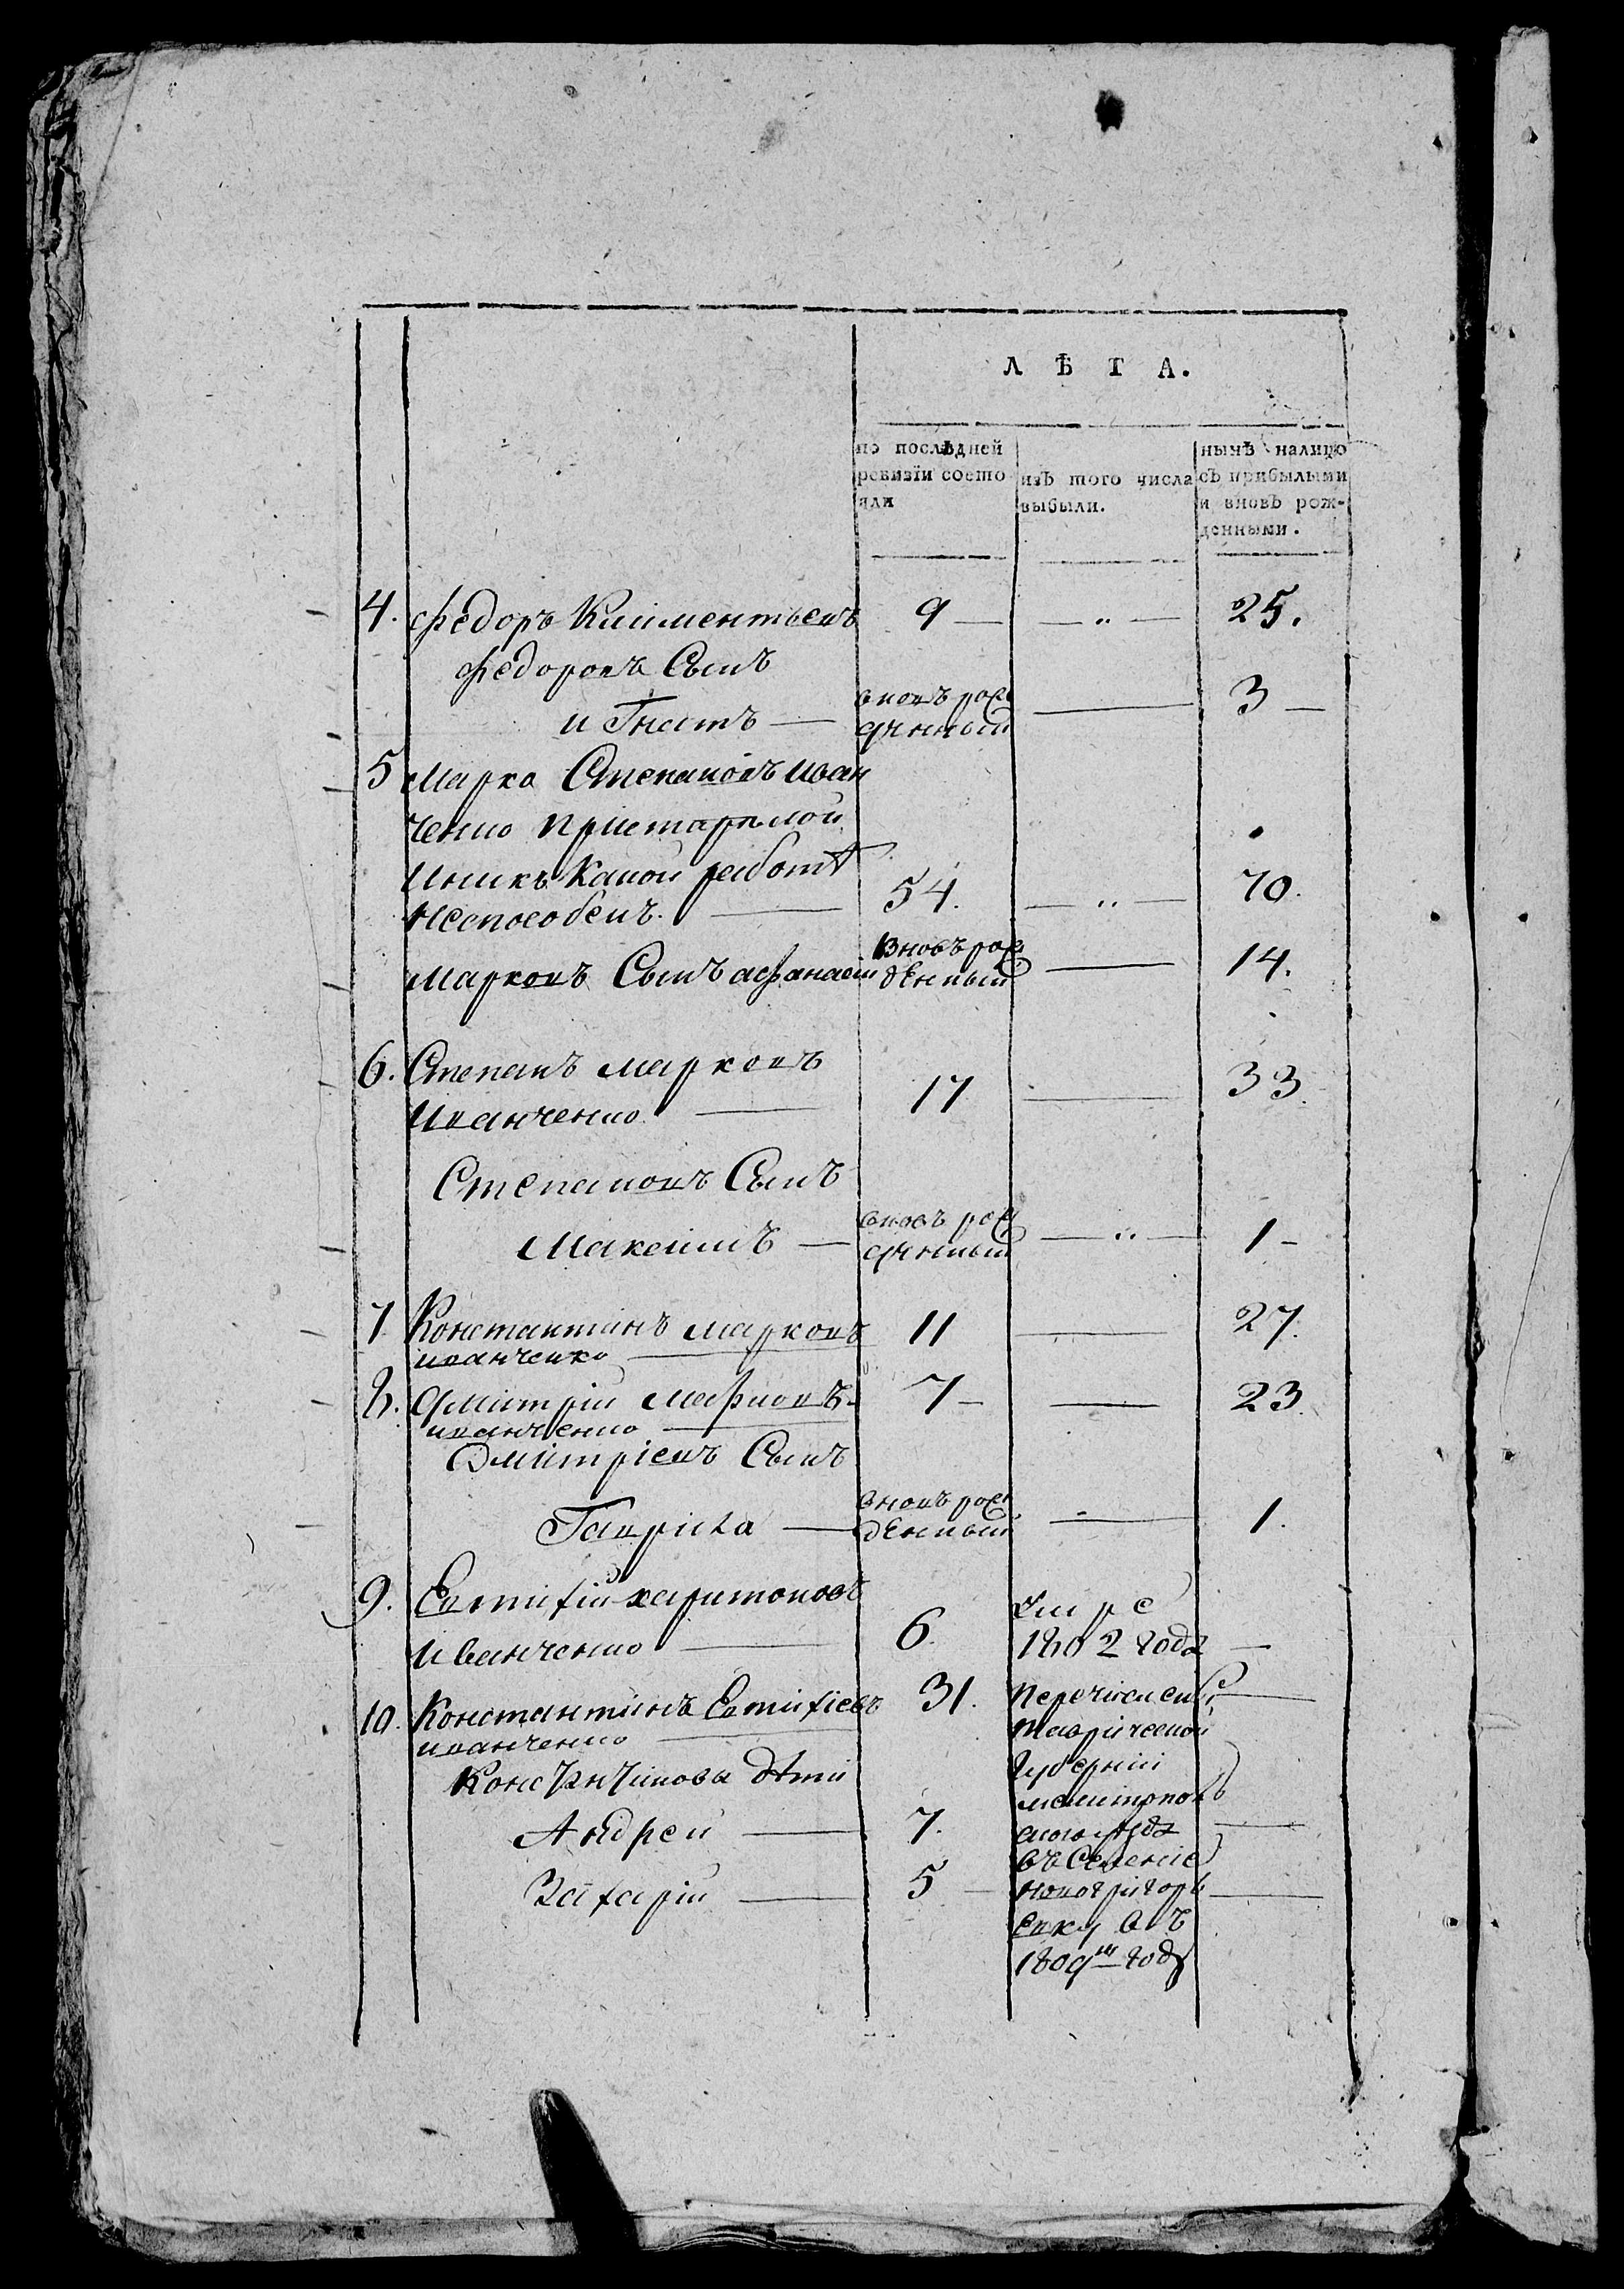 ЛѢТА.
по послѣдней
ревизіи состо
яли
изъ того числа
выбыли.
нынѣ налицо
съ прибылыми
и вновь рож-
денными.
4. Федоръ Климентьевъ 9 — — „ — 25.
Федоровъ Сынъ
и Гнатъ — вновь рож
денный — 3 —
5 Марко Степановъ Иван
ченко престарелой
Иникъ Какой работѣ
Неспособенъ. — 54. — „ — 70.
Марковъ Сынъ афанасий Вновь рож
денный — 14.
6. Степанъ Марковъ
Иванченко — 17 — 33.
Степановъ Сынъ
Максимъ — вновь рож
денный — „ — 1 —
7 Константинъ Марковъ 11 — 27.
иванченко —
8. Дмитрій Марковъ 7 — — 23.
иванченко —
Дмитріевъ Сынъ
Гаврила — вновь рож
денный — 1.
9. Евтифій харитоновъ
Иванченко — 6. Умре
1802 года —
10. Константинъ Евтифіевъ 31.
иванченко —
Константинова дѣти
Андрей — 7.
Захарій — 5 —
Перечислены
Таврической
Губерніи
мелитополь
скаго уезда
въ Селение
новогригорь
евку въ
1809м году